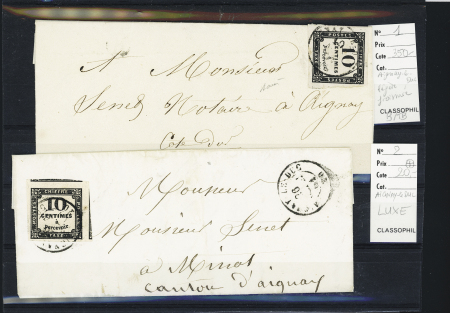 A Monsieur
Senet Notaire à Aignay
Côte d'or
CHIFFRE
10
CENTIMES
à
percevoir
TAXE
10
CENTIMES
à
percevoir
AIGNAY-LE-DUC
20
Monsieur
Monsieur Senet
à Minot
canton d'aignay
N° 1
Prix
Cote 350-
Cat.
CLASSOPHIL
N° 2
Prix
Cote 20-
Cat.
LUXE
CLASSOPHIL